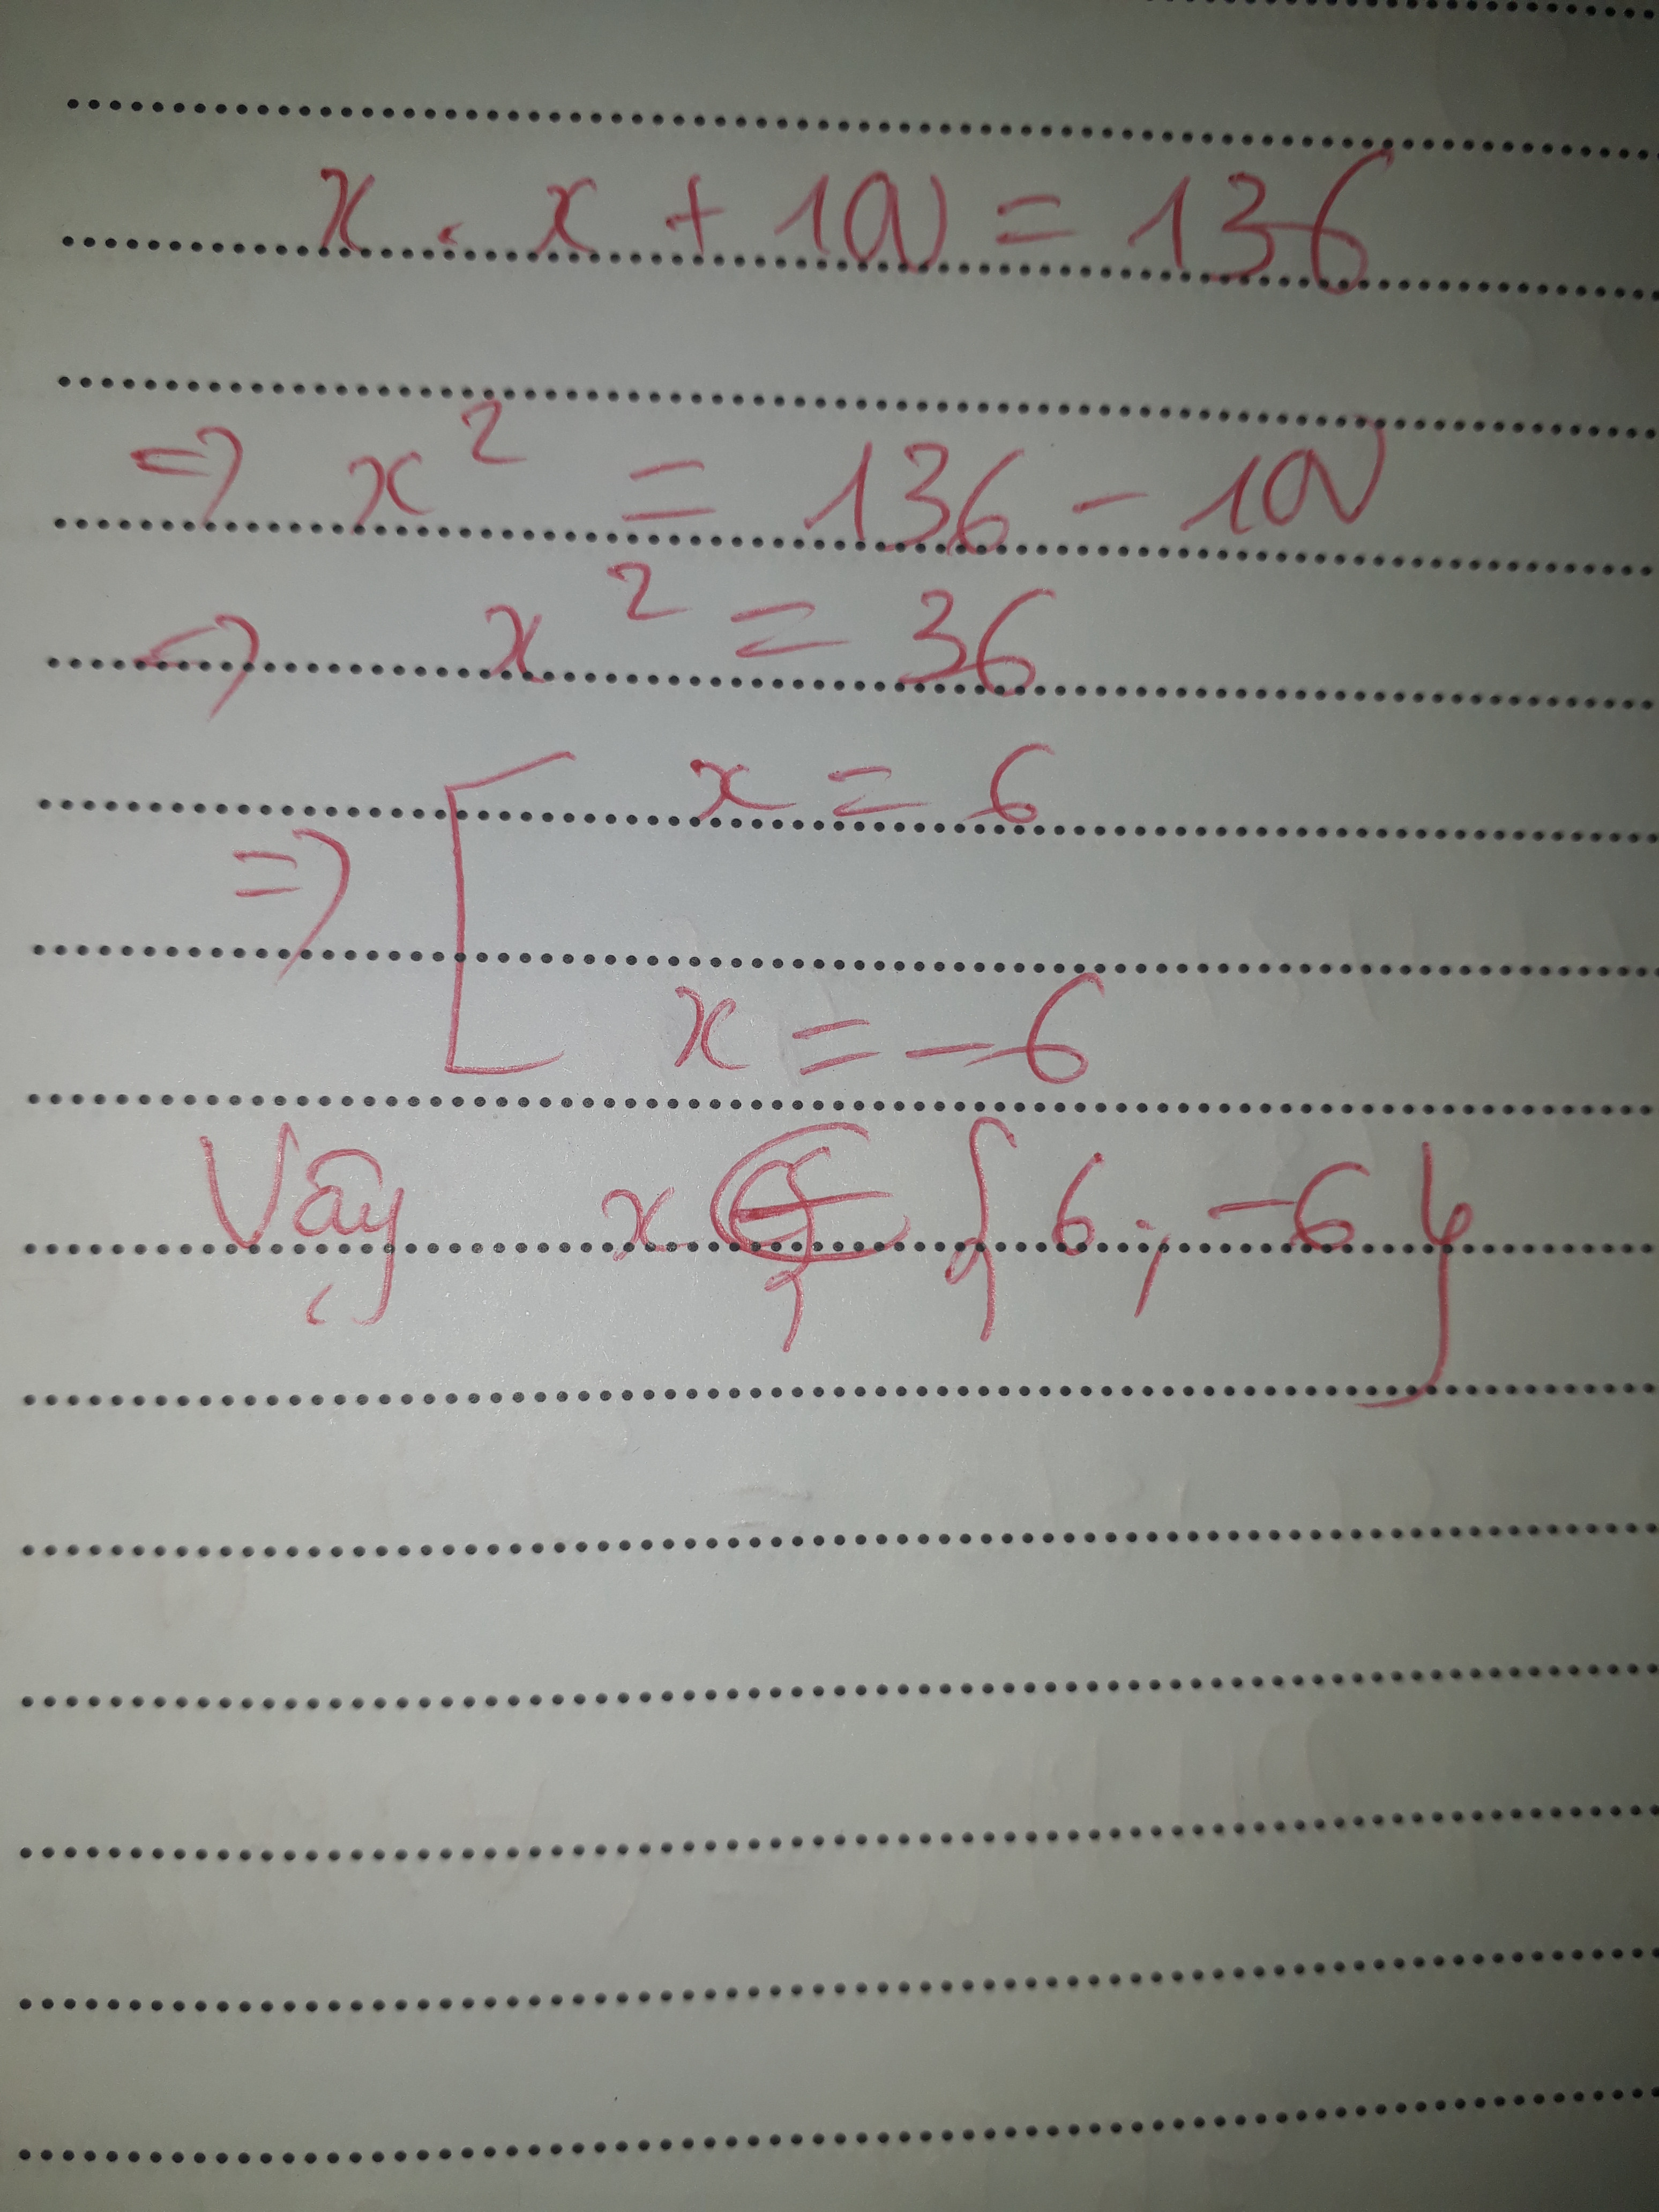 x . x + 100 = 136
=> x² = 136 - 100
=> x² = 36
x = 6
=> [
x = -6
Vậy x ∈ { 6 ; -6 }